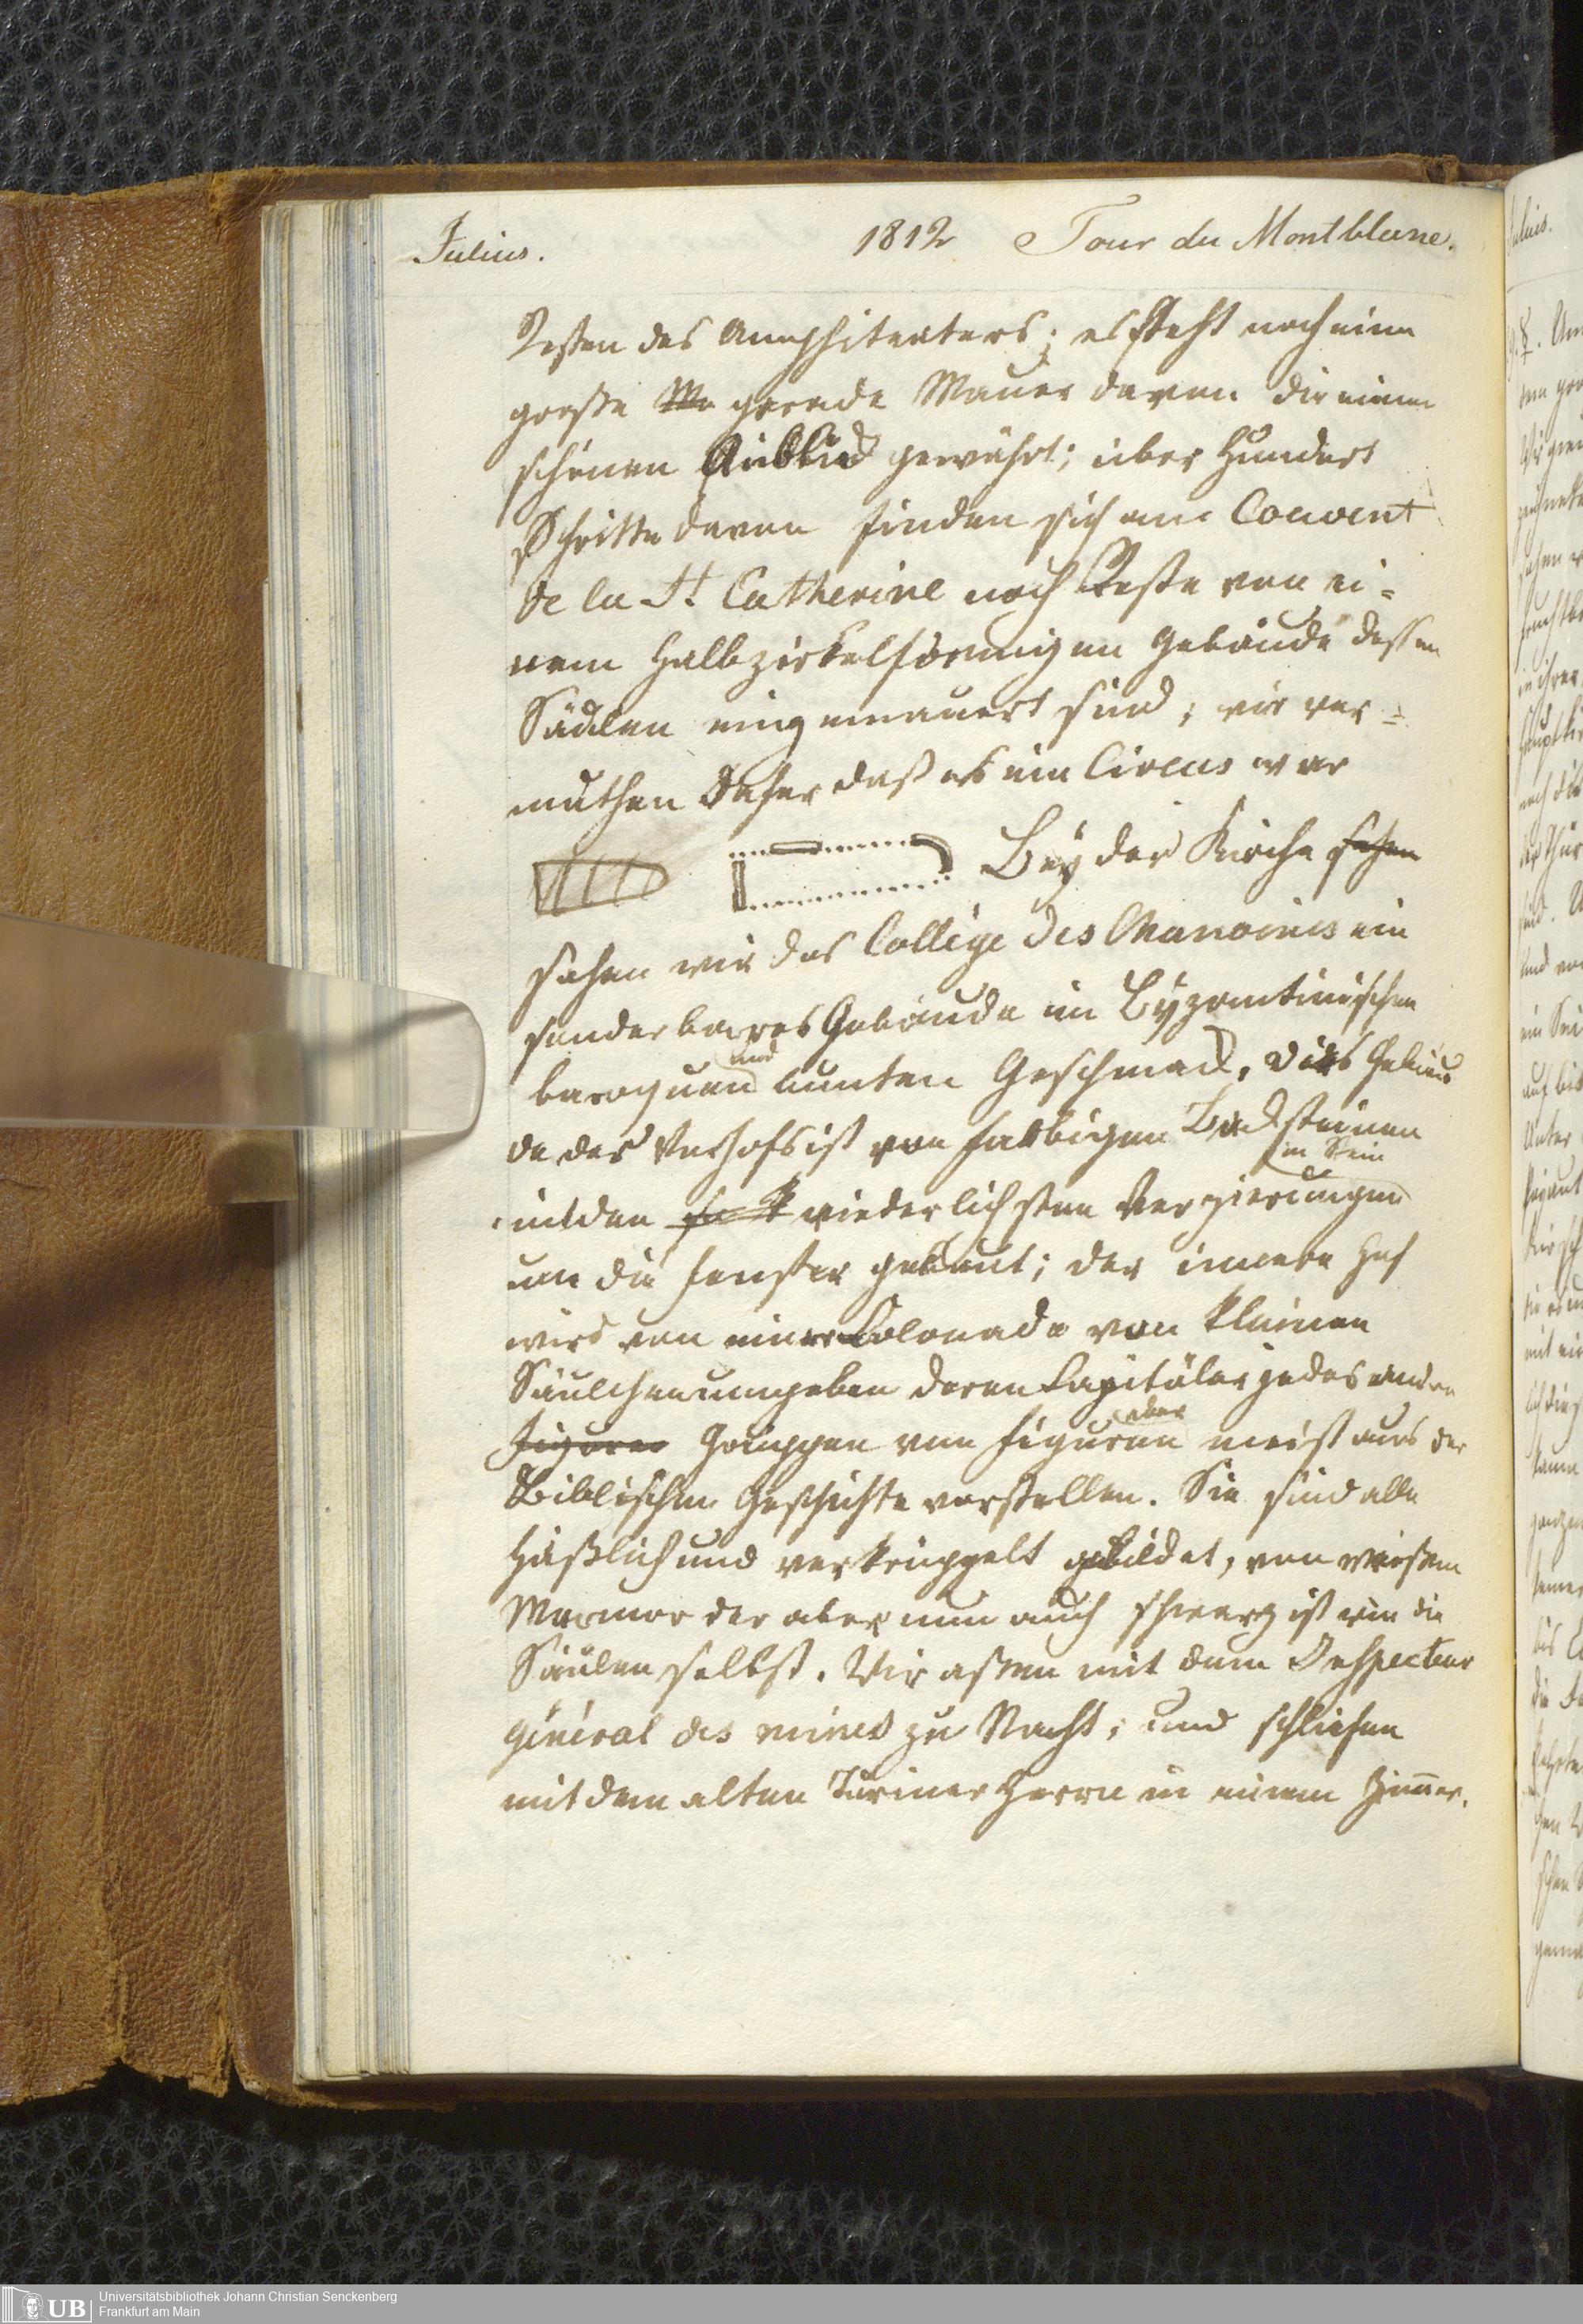 Julius. 1812 Tour du Montblanc.
Resten des Amphiteaters; es steht noch eine
große gerade Mauer davon die einen
schönen Anblick gewährt; über hundert
Schritte davon finden sich am Couvent
de la St. Catherine noch Reste von ei=
nem halbzirkelförmigen Gebäude dessen
Säulen eingemauert sind; wir ver=
muthen daher daß es ein Circus war
Bey der Kirche sahen
sahen wir das College des Chanoines ein
sonderbares Gebäude im Byzantinischen
baroquen und bunten Geschmack, dies Gebäu
de des Vorhofs ist von farbigen Backsteinen
mit den wiederlichsten Verzierungen in Stein
um die Fenster gebaut; der innere Hof
wird von einer Colonade von kleinen
Säulchen umgeben deren Capitäler jedes andre
Figuren Gruppen von Figuren aber meist aus der
Biblischen Geschichte vorstellen. Sie sind alle
häßlich und verkrüppelt gebildet, von weißem
Marmor der aber nun auch schwarz ist wie die
Säulen selbst. Wir aßen mit dem Inspecteur
général des mines zu Nacht; und schliefen
mit dem alten Turiner Herrn in einem Zimmer.
Universitätsbibliothek Johann Christian Senckenberg
Frankfurt am Main
UB